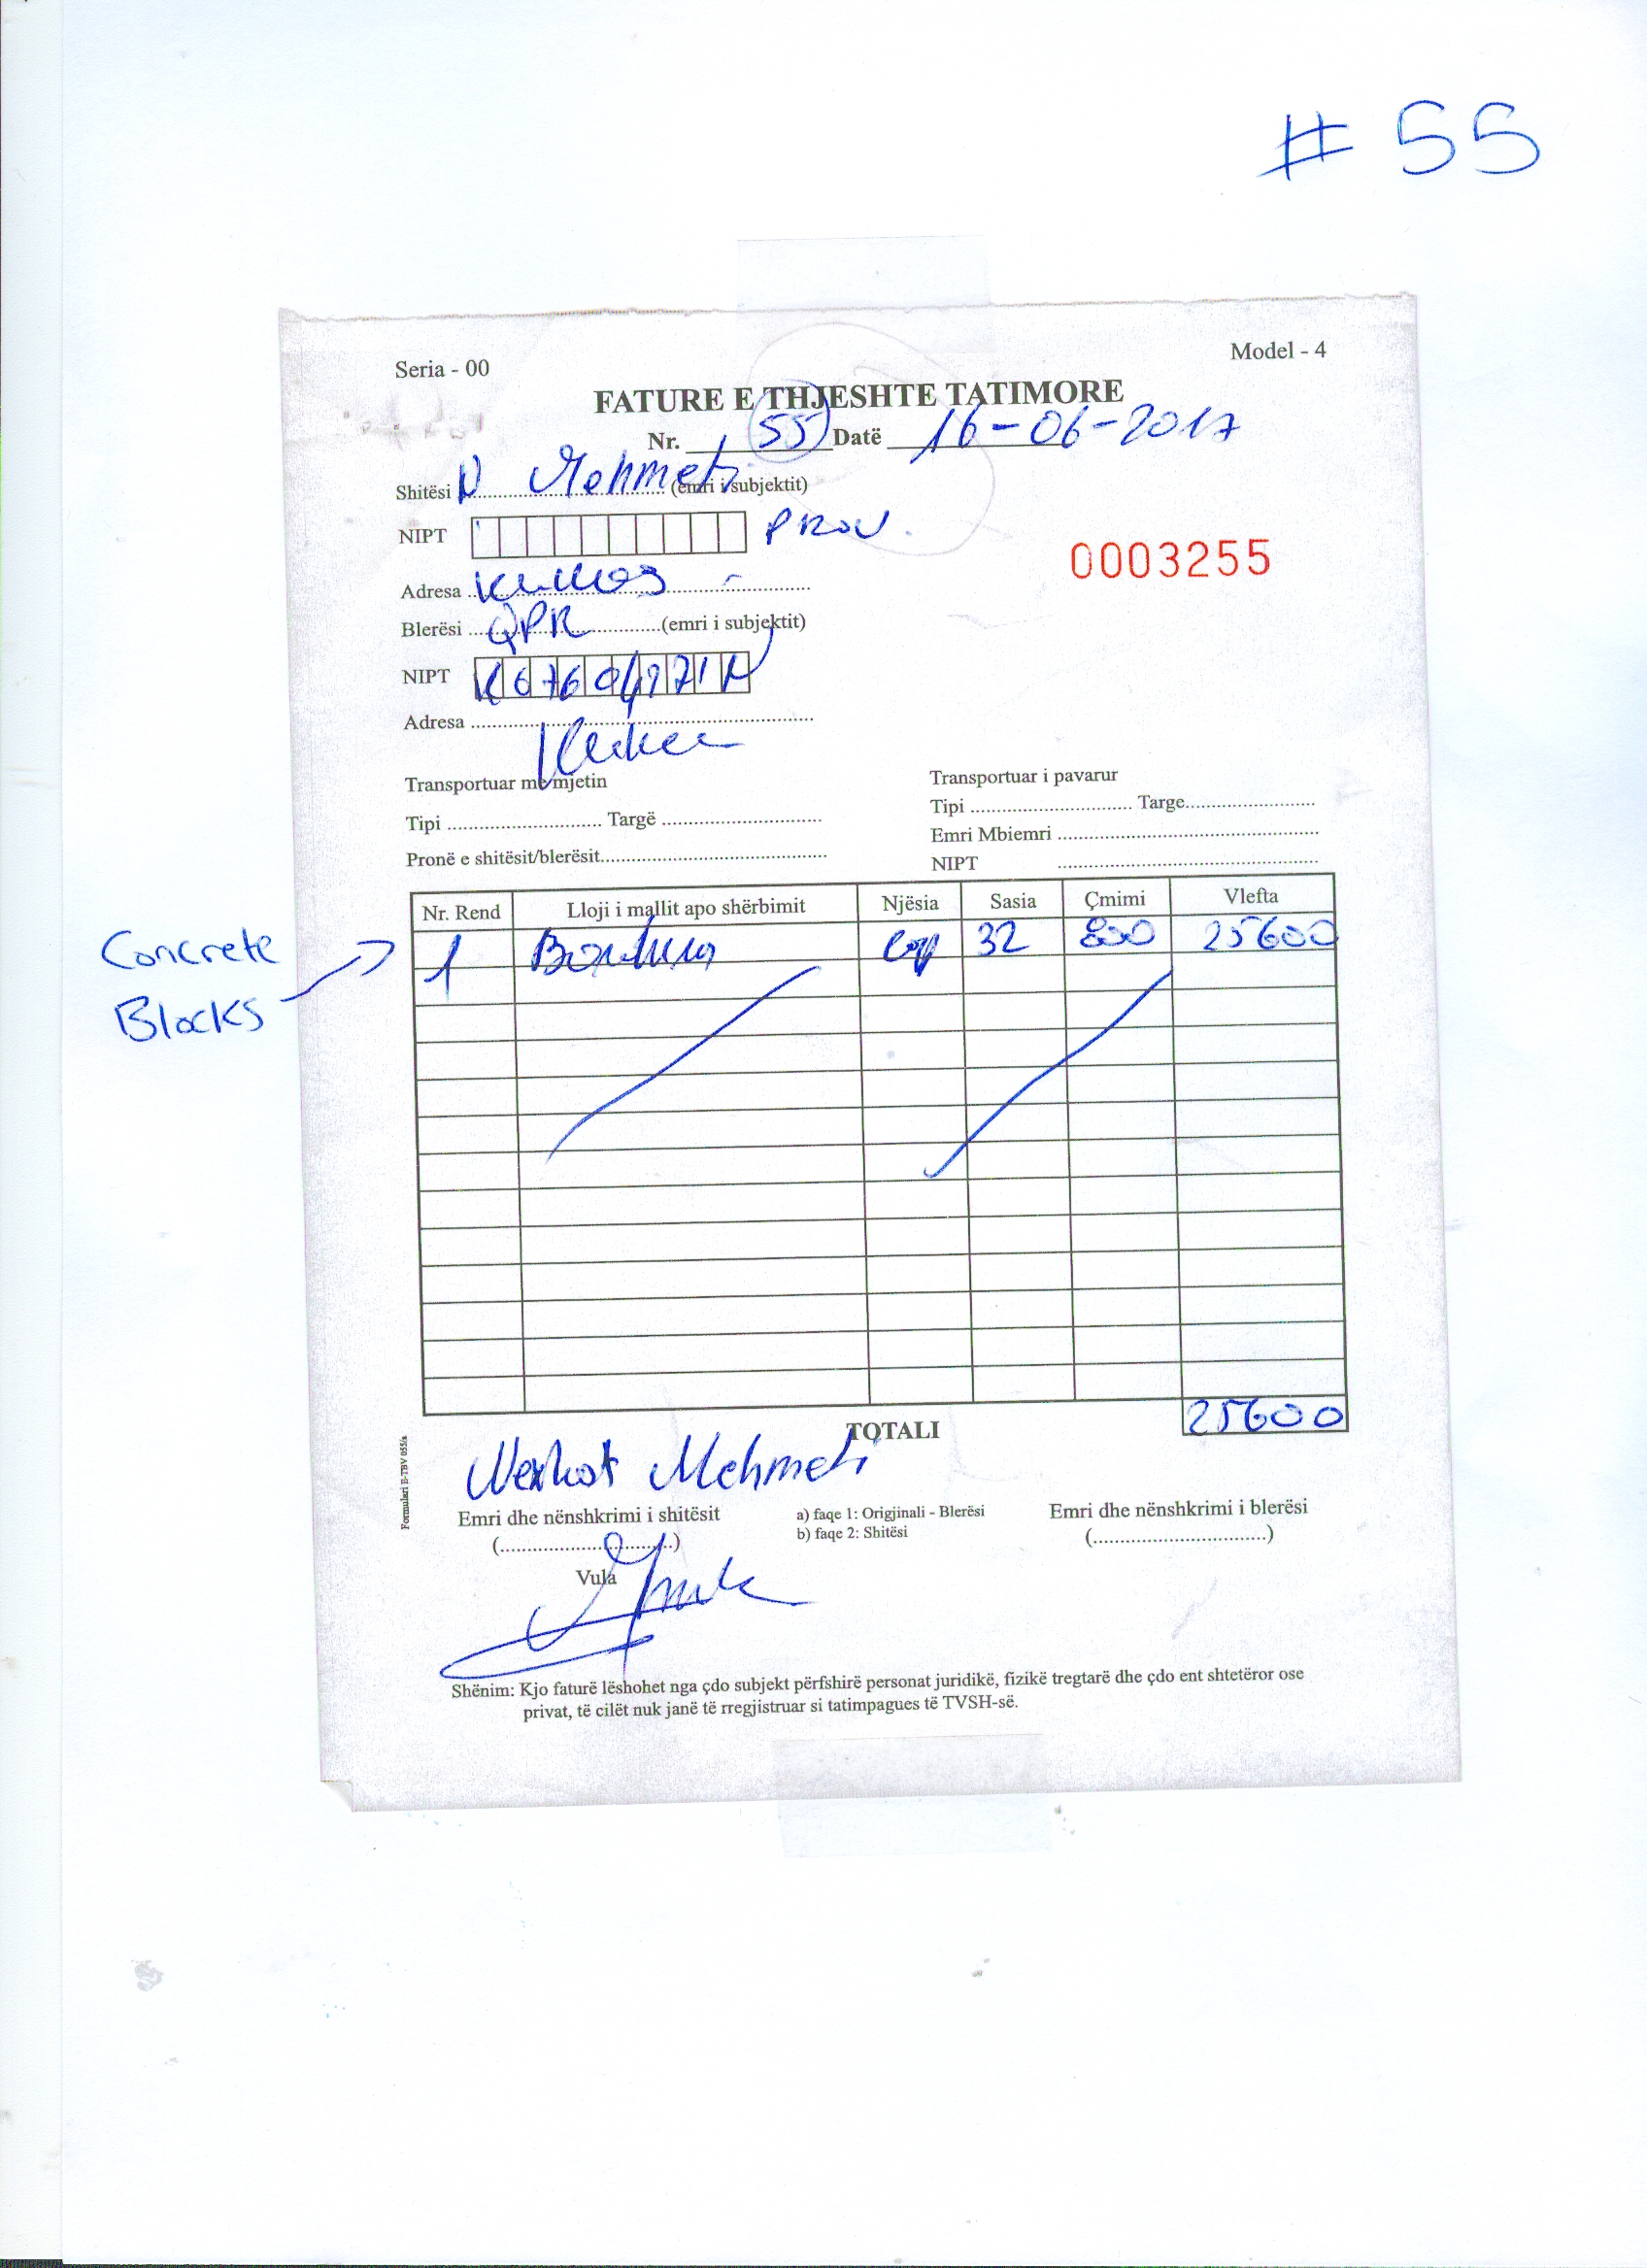 # 55
Seria - 00
Model - 4
FATURE E THJESHTE TATIMORE
Nr. 55 Datë 16-06-2017
Shitësi N Mehmeti (emri i subjektit)
NIPT
0003255
Adresa
Blerësi QPR (emri i subjektit)
NIPT
Adresa
Transportuar me mjetin
Transportuar i pavarur
Tipi ............ Targë ............
Tipi ............ Targe............
Emri Mbiemri ............
Pronë e shitësit/blerësit............
NIPT ............
Nr. Rend Lloji i mallit apo shërbimit Njësia Sasia Çmimi Vlefta
Concrete Blocks
1 cop 32 800 25600
TOTALI 25600
Mehmeti
Emri dhe nënshkrimi i shitësit
(............)
Vula
a) faqe 1: Origjinali - Blerësi
b) faqe 2: Shitësi
Emri dhe nënshkrimi i blerësi
(............)
Formulari E-TBV 055/a
Shënim: Kjo faturë lëshohet nga çdo subjekt përfshirë personat juridikë, fizikë tregtarë dhe çdo ent shtetëror ose
privat, të cilët nuk janë të rregjistruar si tatimpagues të TVSH-së.